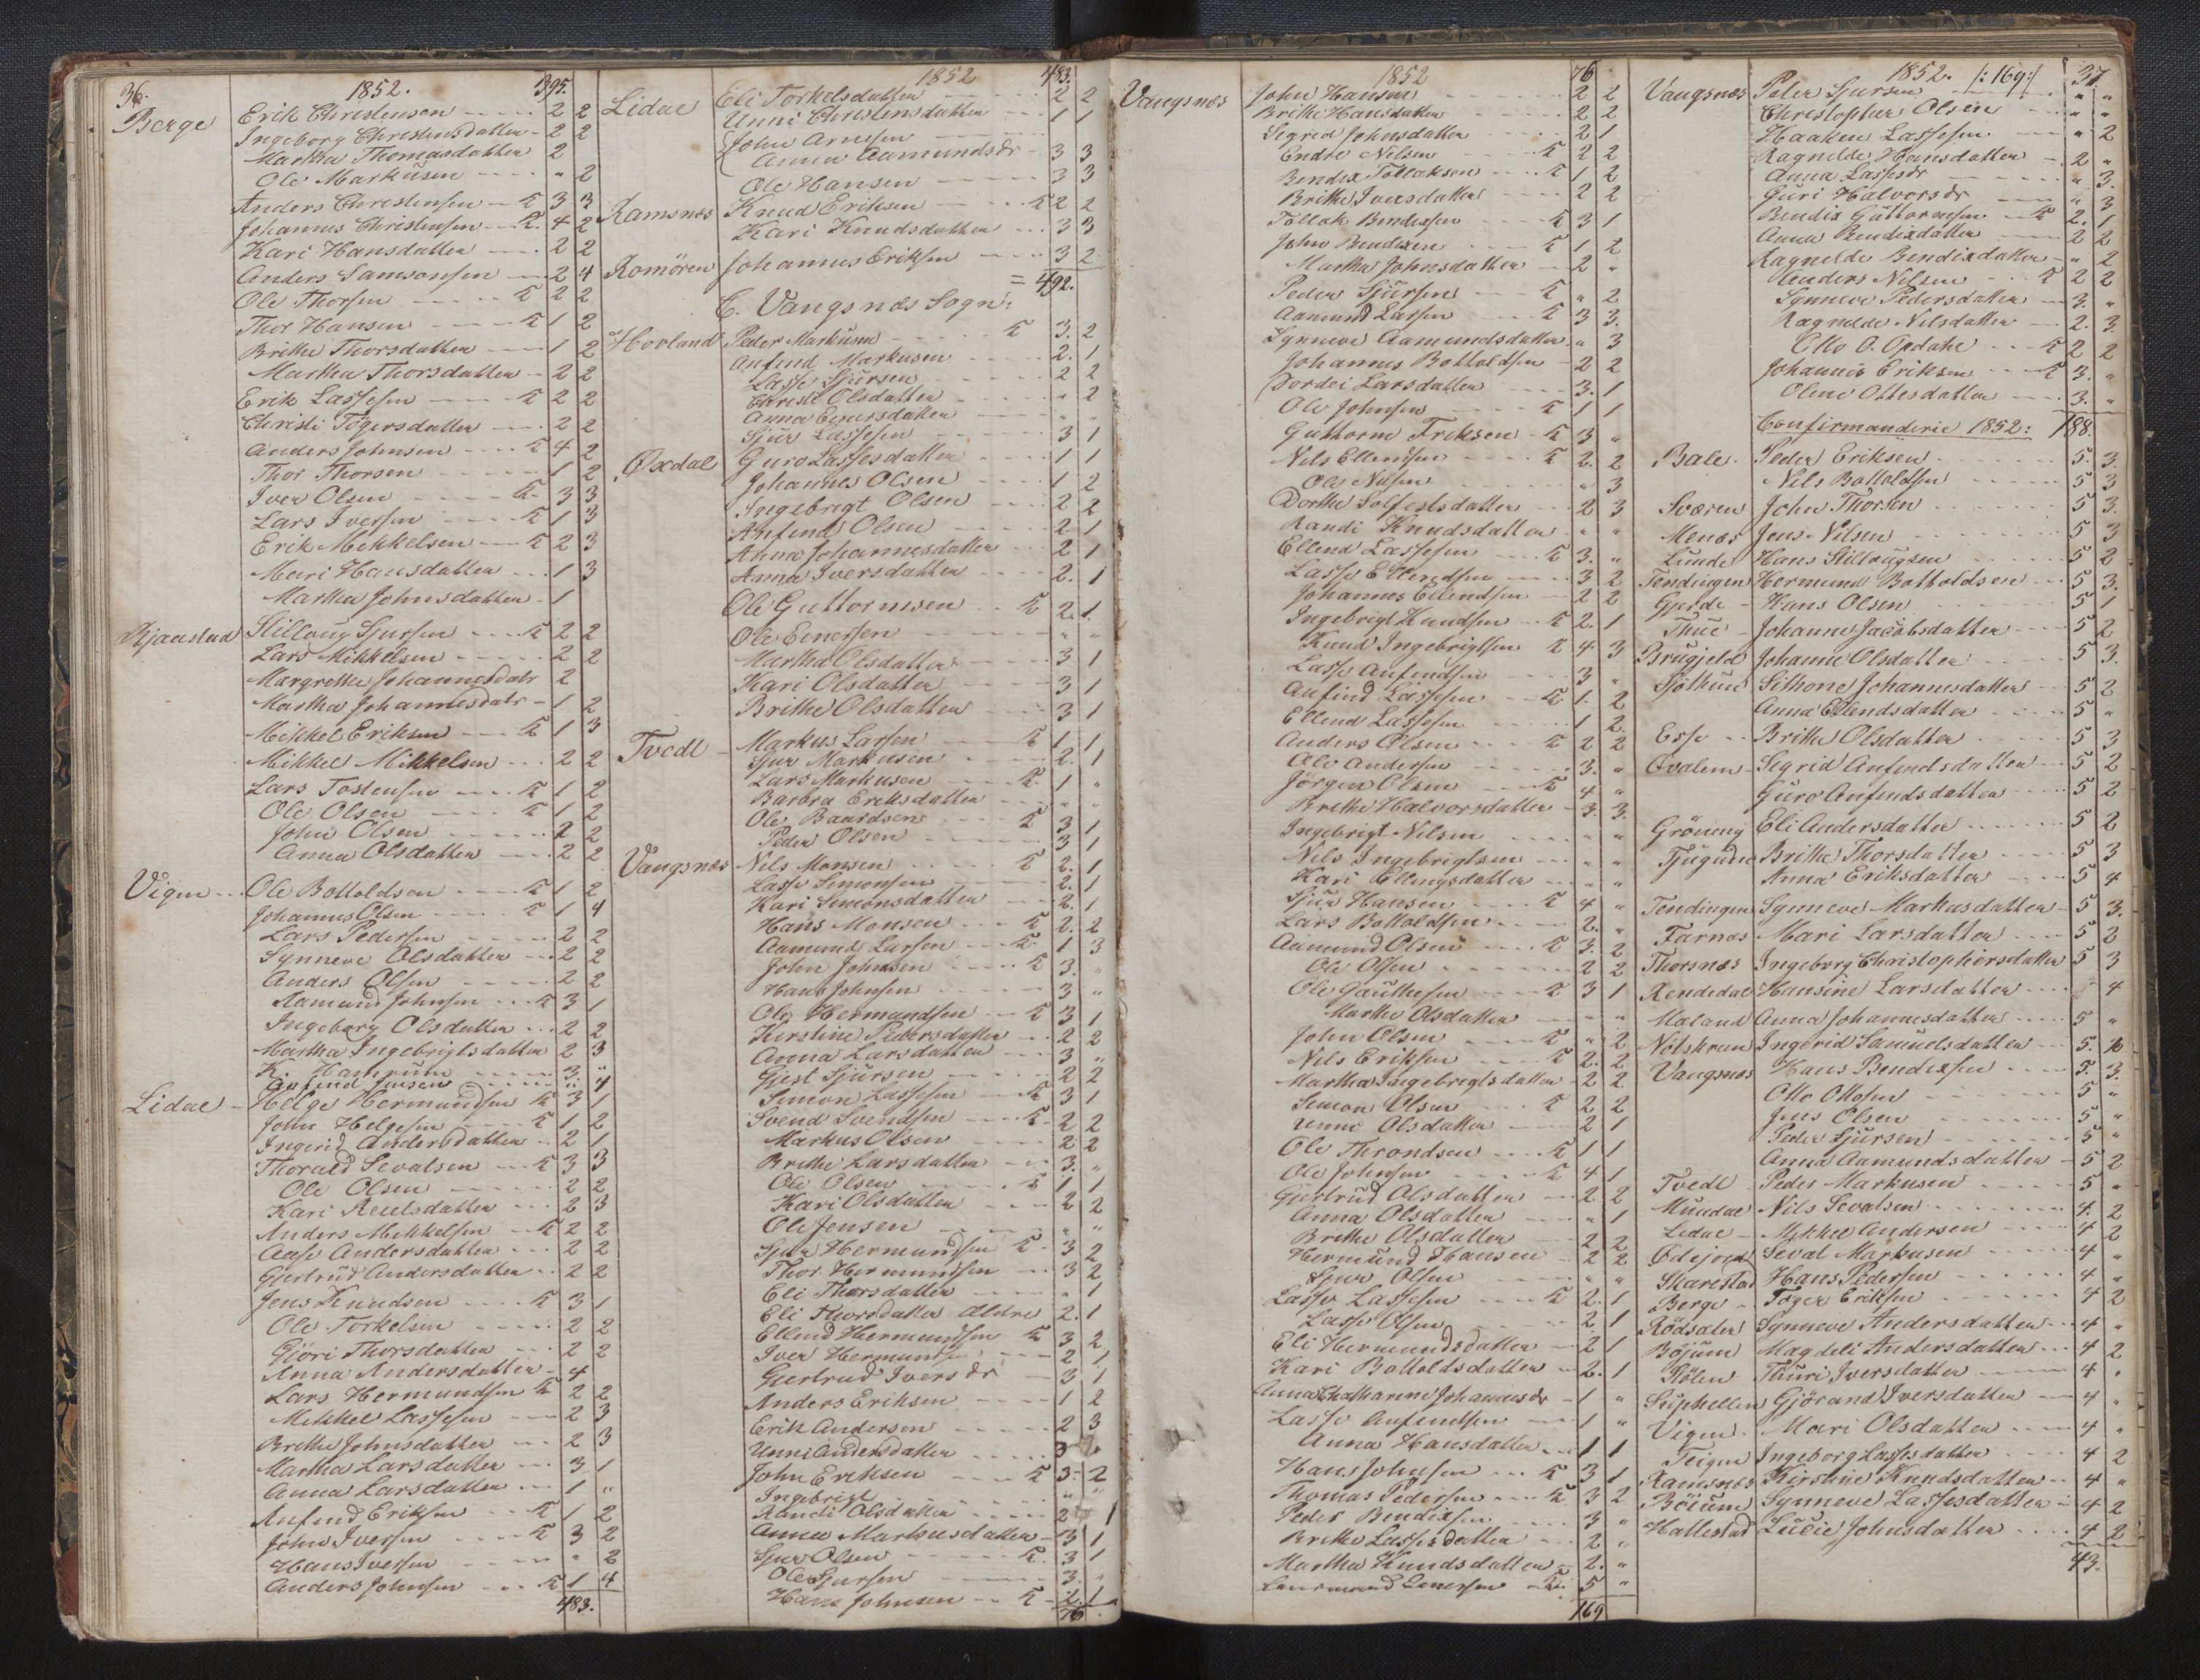 36. 1852. 395.
Berge Erik Christensen 2 2
Ingeborg Christensdatter 2 2
Martha Thomasdatter 2
Ole Markusen " 2
Anders Christensen K 3 3
Johannes Christensen K. 4 2
Kari Hansdatter 2 2
Anders Samsonsen 2 4
Ole Thorsen K 2 2
Thor Hansen K 1 2
Brithe Thorsdatter 1 2
Martha Thorsdatter 2 2
Erik Lassesen K 2 2
Christi Tögersdatter 2 2
Anders Johnsen K 4 2
Thor Thorsen 1 2
Iver Olsen K 3 3
Lars Iversen K 1 3
Erik Mikkelsen K 2 3
Mari Hansdatter 1 3
Martha Johnsdatter 1
Kjaustad Stilloug Sjursen K 2 2
Lars Mikkelsen 2 2
Margrethe Johannesdatr 2
Martha Johannesdatr 1 2
Mikkel Eriksen K 1 3
Mikkel Mikkelsen 2 2
Lars Tostensen K 1 2
Ole Olsen K 1 2
John Olsen 2 2
Anna Olsdatter 2 2
Vigen Ole Botholdsen K 1 2
Johannes Olsen K 1 4
Lars Pedersen 2 2
Synneve Olsdatter 2 2
Anders Olsen 2 2
Aamund Johnsen K 3 1
Ingeborg Olsdatter 2 2
Martha Ingebrigtsdatter 2 3
K. 3 "
Anfind Jensen " 4
Lidal Helge Hermundsen K 3 1
John Helgesen K 1 2
Ingerid Andersdatter 2 1
Thorald Sevalsen K 3 3
Ole Olsen 2 2
Kari 2 3
Anders Mikkelsen K 2 2
Aase Andersdatter 2 2
Gjertrud Andersdatter 2 2
Jens Knudsen K 3 1
Ole Torkelsen 2 2
Gjöri Thorsdatter 2 2
Anna Andersdatter 4
Lars Hermundsen K 2 2
Mikkel Lassesen 2 3
Brithe Johnsdatter 2 3
Martha Larsdatter 3 1
Anna Larsdatter 1 "
Anfind Eriksen K 1 2
John Iversen K 3 2
Hans Iversen " 2
Anders Johnsen K 1 4
483.
1852 483.
Lidal Eli Torkelsdatter 2 2
Unni Christensdatter 1 1
John Arnesen
Anna Aamundsdr 3 3
Ole Hansen 3 3
Ramsnæs Knud Eriksen K 2 2
Kari Knudsdatter 3 3
Romören Johannes Eriksen 3 2
= 492.
C. Vangsnæs Sogn:
Hovland Peder Markusen K 3. 2
Anfind Markusen 2. 1
Lasse Sjursen 2 2
Christi Olsdatter " 2
Anna Einersdatter " "
Sjur Lassesen 3 1
Oxdal Guro Lassesdatter 1 1
Johannes Olsen 1 2
Ingebrigt Olsen 2 2
Anfind Olsen 2 1
Anna Johannesdatter 2 1
Anna Iversdatter 2. 1
Ole Guttormsen K 2. 1.
Ole Einersen " "
Martha Olsdatter 3 1
Kari Olsdatter 3 1
Brithe Olsdatter 3 1
Tvedt Markus Larsen K 1 1
Sjur Markusen 2. 1
Lars Markusen K. 1 "
Barbra Eriksdatter " "
Ole Baardsen K 3 1
Peder Olsen 3 1
Vangsnæs Nils Monsen K 2. 1
Lasse Simonsen 2. 1
Kari Simonsdatter 2. 1
Hans Monsen K 2. 2
Aamund Larsen K 1 3
John Johnsen K 3. "
Hans Johnsen 3 "
Ole Hermundsen K 3 1
Kirstine Pedersdatter 2 2
Anna Larsdatter 3 "
Gjest Sjursen 2 2
Simon Lassesen K 3 1
Svend Svendsen K 2 2
Markus Olsen 2 2
Brithe Larsdatter 3. "
Ole Olsen K 1 1
Kari Olsdatter 2 2
Ole Jensen " "
Sjur Hermundsen K. 3 2
Thor Hermundsen 3 2
Eli Thorsdatter " 1
Eli Thorsdatter Aldre 2. 1
Ellend Hermundsen K 3 2
Iver Hermundsen 2 1
Gjertrud Iversdr 3 1
Anders Eriksen 1 2
Erik Andersen 2 3
Unni Andersdatter 3
John Eriksen K 3 2
Ingebrigt " "
Randi Olsdatter 2 1
Anna Markusdatter 3 1
Sjur Olsen K. 3 1
Ole Sjursen 3. "
Hans Johnsen K 2. 1
76
1852 76
Vangsnæs John Hansen 2 2
Brithe Hansdatter 2 2
Sigrid Johnsdatter 2 1
Endre Nilsen K 2 2
Bendix Tollaksen K 1 2
Brithe Iversdatter 2 2
Tollak Bendixsen K 3 1
John Bendixen K 1 2
Martha Johnsdatter 2 "
Peder Sjursen K " 2
Aamund Larsen K 3 3.
Synneve Aamundsdatter " 3
Johannes Botholdsen 2 2
Dordei Larsdatter 3. 1
Ole Johnsen K 1 1
Guttorm Eriksen K 3 "
Nils Ellendsen K 2. 2
Ole Nilsen " 3
Dorthe Solfestsdatter 2 3
Randi Knudsdatter " "
Ellend Lassesen K 3. "
Lasse Ellendsen 3 2
Johannes Ellendsen 2 2
Ingebrigt Knudsen K 2. 1
Knud Ingebrigtsen K 4 3
Lasse Anfindsen 3 "
Anfind Lassesen K 1. 2
Ellend Lassesen 1 2.
Anders Olsen K 2 2
Ole Andersen 3. "
Jörgen Olsen K 4 "
Brithe Halvorsdatter 3. 3.
Ingebrigt Nilsen " "
Nils Ingebrigtsen " "
Kari Ellingsdatter " "
Sjur Hansen K 4 "
Lars Botholdsen 2. "
Aamund Olsen K 3. 2
Ole Olsen 2 2
Ole Gauthesen K 3 1
Marthe Olsdatter " "
John Olsen K " 2
Nils Eriksen K 2. 2
Martha Ingebrigtsdatter 2 2
Simon Olsen K 2 2
Unni Olsdatter 2 1
Ole Throndsen K 1 1
Ole Johnsen K 4 1
Gjertrud Olsdatter 2 2
Anna Olsdatter " 1
Brithe Olsdatter 2 2
Hermund Hansen 2 2
Sjur Olsen " "
Lasse Lassesen K 2. 1
Lasse Olsen 2. 1
Eli Hermundsdatter 2 1
Kari Botholdsdatter 2. 1
Anna Chatharine Johannesdr 1 "
Lasse Anfindsen 1 "
Anna Hansdatter 1 1
Hans Johnsen K 3 1
Thomas Pedersen K 3 2
Peder Bendixsen 3 "
Brithe Lassesdatter 2 "
Martha Knudsdatter 2. "
Lensmand K. 5 "
169
1852. /:169:/ 37
Vangsnæs Peder Sjursen " "
Christopher Olsen " "
Haaken Lassesen " 2
Ragnilde Hansdatter 2 "
Anna Lassesdr " 3.
Guri Halvorsdr " 3
Bendix Guttormsen K 2. 1
Anna Bendixdatter 2 2
Ragnilde Bendixdatter " 2
Anders Nilsen K 2 2
Synneve Pedersdatter 3. "
Ragnilde Nilsdatter 2. 3.
Otto O. Opdahl K 2 2
Johannes Eriksen K 3. "
Oline Ottesdatter 3. "
Confirmanderie 1852: 188.
Bale Peder Eriksen 5. 3.
Nils Botholdsen 5 3
Sværen John Thorsen 5 3.
Menæs Jens Nilsen 5 3
Lunde Hans Stillougsen 5 2
Tendingen Hermund Botholdsen 5 3.
Gjerde Hans Olsen 5 1
Thue Johanne Jacobsdatter 5 2
Brugjeld Johanne Olsdatter 5 3.
Sjöthun Sithone Johannesdatter 5 2
Anna Ellendsdatter 5 "
Esse Brithe Olsdatter 5 3
Ovalem Sigrid Anfindsdatter 5 2
Guro Anfindsdatter 5 2
Gröneng Eli Andersdatter 5 2
Tjugum Brithe Thorsdatter 5 3
Anna Eriksdatter 5 4
Tendingen Synneve Markusdatter 5 3.
Farnæs Mari Larsdatter 5 2
Thorsnæs Ingeborg Christophersdatter 5 3
Rendedal Hansine Larsdatter 4
Maland Anna Johannesdatter 5 "
Ingerid Samuelsdatter 5.
Vangsnæs Hans Bendixsen 5. 3.
Otto Ottosen 5 "
Jens Olsen 5 "
Peder Sjursen 5 "
Anna Aamundsdatter 5 2
Tvedt Peder Markusen 5 "
Mundal Nils Sevalsen 4. 2
Lidal Mikkel Andersen 4 2
Ødejord Seval Markusen 4 "
Skarestad Hans Pedersen 4 "
Berge Töger Eriksen 4 2
Rödsæter Synneve Andersdatter 4 "
Böjum Magdeli Andersdatter 4 2
Stölen Guri Iversdatter 4 "
Suphellen Gjörand Iversdatter 4 "
Vigen Mari Olsdatter 4 "
Teigen Ingeborg Lassesdatter 4 2
Ramsnæs Kirstine Knudsdatter 4 "
Böium Synneve Lassesdatter 4 2
Hallestad Lucie Johnsdatter 4 2
43.